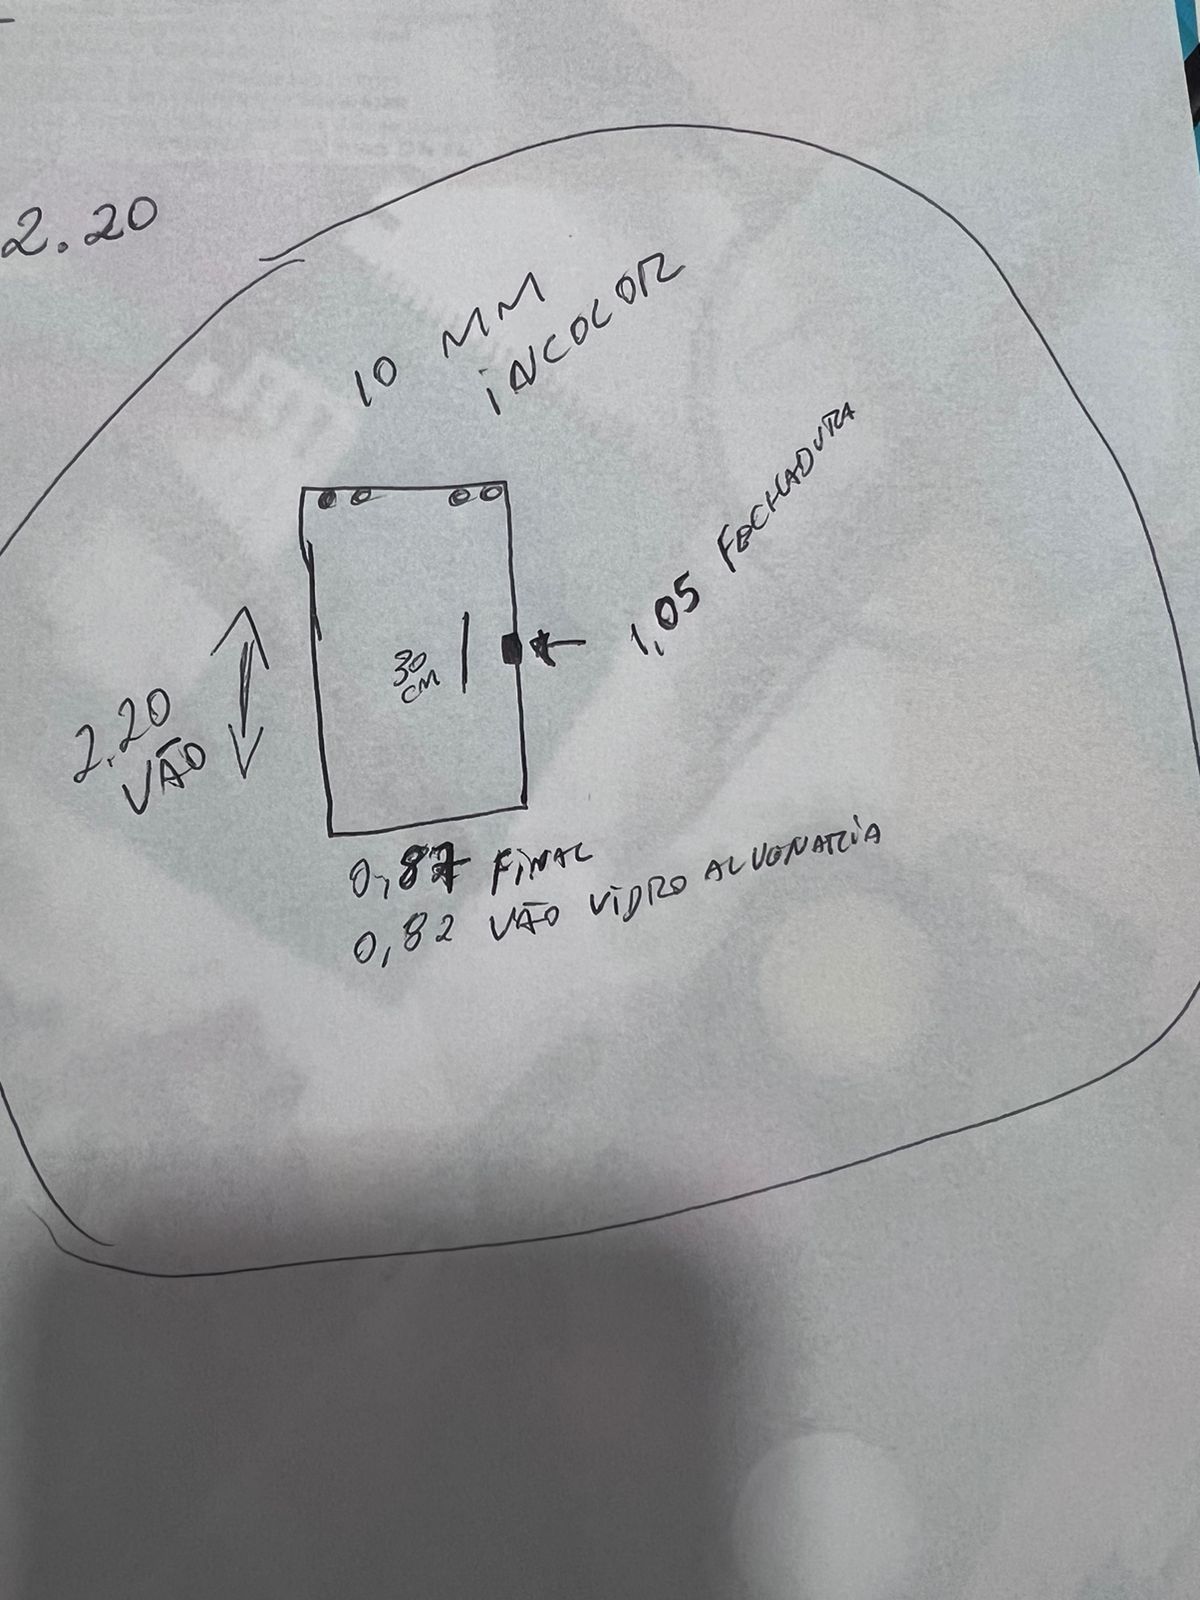 2.20
10 MM
INCOLOR
1,05 FECHADURA
30
CM
2.20
VÃO
0,87 FINAL
0,82 VÃO VIDRO ALVENARIA